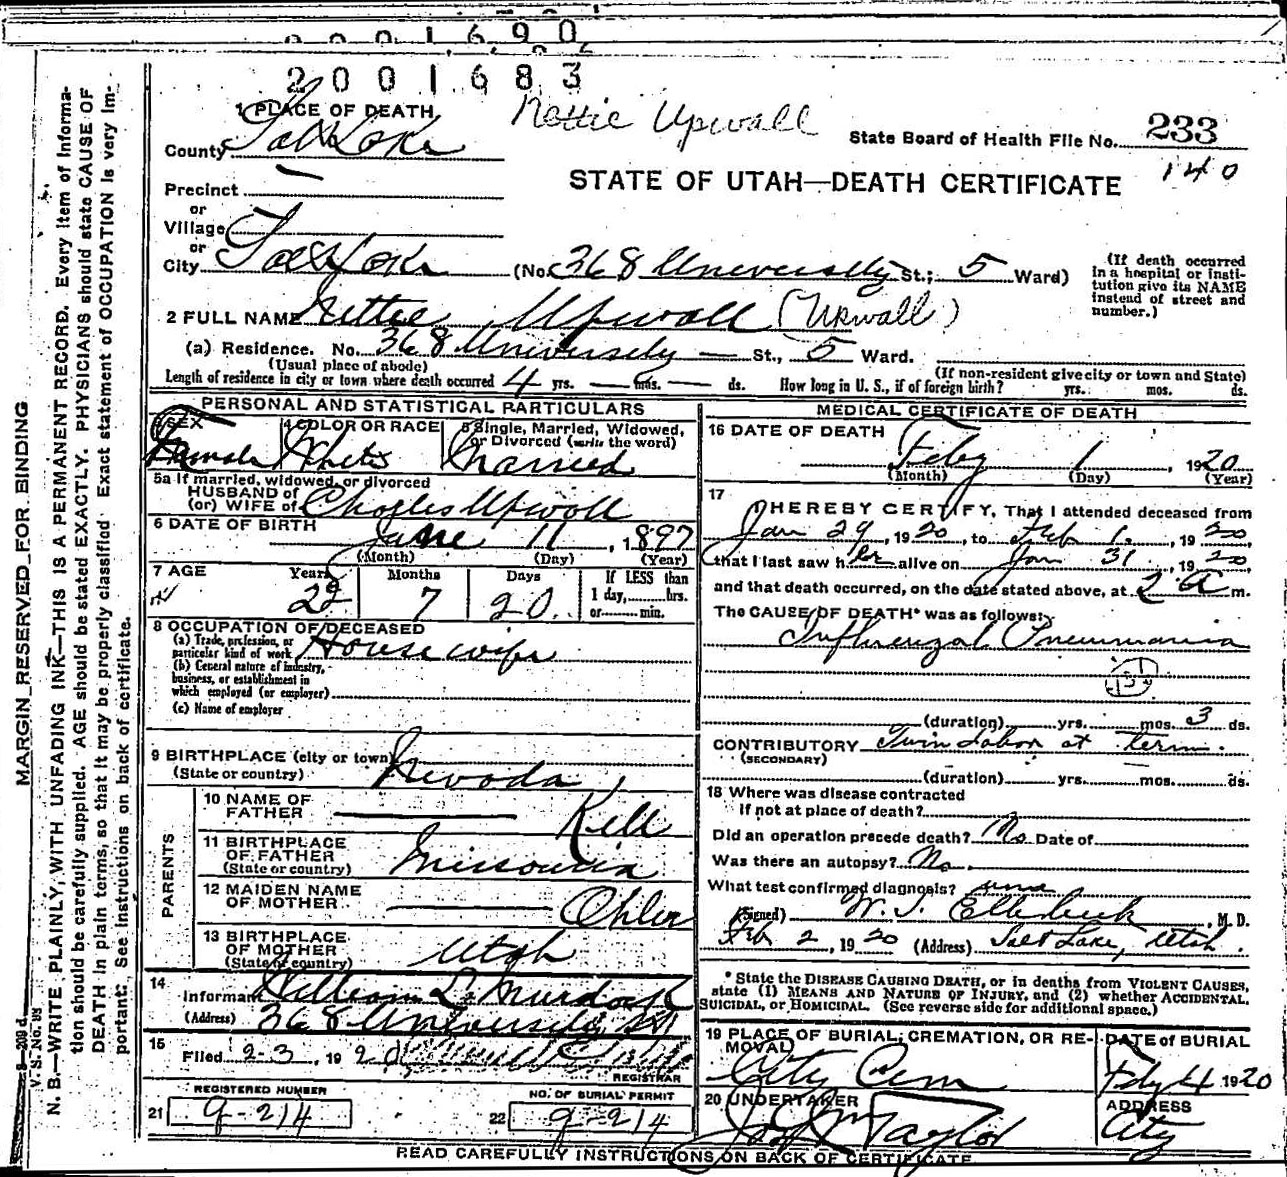 2001690
2001683
Nettie Upwall
1 PLACE OF DEATH
State Board of Health File No. 233
140
County Salt Lake
STATE OF UTAH—DEATH CERTIFICATE
Precinct
or
Village
or
City Salt Lake (No. 368 University St.; 5 Ward)
(If death occurred
in a hospital or insti-
tution give its NAME
instead of street and
number.)
2 FULL NAME Nettie Upwall (Upwall)
(a) Residence. No. 368 University St., 5 Ward.
(Usual place of abode) (If non-resident give city or town and State)
Length of residence in city or town where death occurred 4 yrs. — mos. — ds. How long in U. S., if of foreign birth? yrs. mos. ds.
PERSONAL AND STATISTICAL PARTICULARS
3 SEX Female
4 COLOR OR RACE White
5 Single, Married, Widowed,
or Divorced (write the word)
Married
5a If married, widowed, or divorced
HUSBAND of
(or) WIFE of Charles Upwall
6 DATE OF BIRTH June 11, 1897
(Month) (Day) (Year)
7 AGE Years Months Days If LESS than
1 day, hrs.
or min.
22 7 20
8 OCCUPATION OF DECEASED
(a) Trade, profession, or
particular kind of work House wife
(b) General nature of industry,
business, or establishment in
which employed (or employer)
(c) Name of employer
9 BIRTHPLACE (city or town)
(State or country) Nevada
PARENTS
10 NAME OF
FATHER — Kell
11 BIRTHPLACE
OF FATHER
(State or country) Missouria
12 MAIDEN NAME
OF MOTHER — Ohler
13 BIRTHPLACE
OF MOTHER
(State or country) Utah
14
Informant William L. Murdock
(Address) 368 University
15
Filed 2-3, 1920
REGISTRAR
REGISTERED NUMBER
21 9-214
NO. OF BURIAL PERMIT
22 9-214
MEDICAL CERTIFICATE OF DEATH
16 DATE OF DEATH
Feby 1, 1920
(Month) (Day) (Year)
17
I HEREBY CERTIFY, That I attended deceased from
Jan 29, 1920, to Feb 1, 1920
that I last saw her alive on Jan 31, 1920,
and that death occurred, on the date stated above, at 2 A m.
The CAUSE OF DEATH* was as follows:
Influenzal Pneumonia
(duration) yrs. mos. 3 ds.
CONTRIBUTORY Twin Labor at term.
(SECONDARY)
(duration) yrs. mos. ds.
18 Where was disease contracted
if not at place of death?
Did an operation precede death? No Date of
Was there an autopsy? No.
What test confirmed diagnosis?
(Signed) W. T. Ellerbeck, M. D.
Feb 2, 1920 (Address) Salt Lake, Utah.
* State the DISEASE CAUSING DEATH, or in deaths from VIOLENT CAUSES,
state (1) MEANS AND NATURE OF INJURY, and (2) whether ACCIDENTAL,
SUICIDAL, or HOMICIDAL. (See reverse side for additional space.)
19 PLACE OF BURIAL, CREMATION, OR RE-
MOVAL
City Cem
DATE of BURIAL
Feby 4 1920
20 UNDERTAKER
Taylor
ADDRESS
City
READ CAREFULLY INSTRUCTIONS ON BACK OF CERTIFICATE
MARGIN RESERVED FOR BINDING
V. S. No. 98
N. B.—WRITE PLAINLY, WITH UNFADING INK—THIS IS A PERMANENT RECORD. Every item of informa-
tion should be carefully supplied. AGE should be stated EXACTLY. PHYSICIANS should state CAUSE OF
DEATH in plain terms, so that it may be properly classified. Exact statement of OCCUPATION is very im-
portant. See instructions on back of certificate.